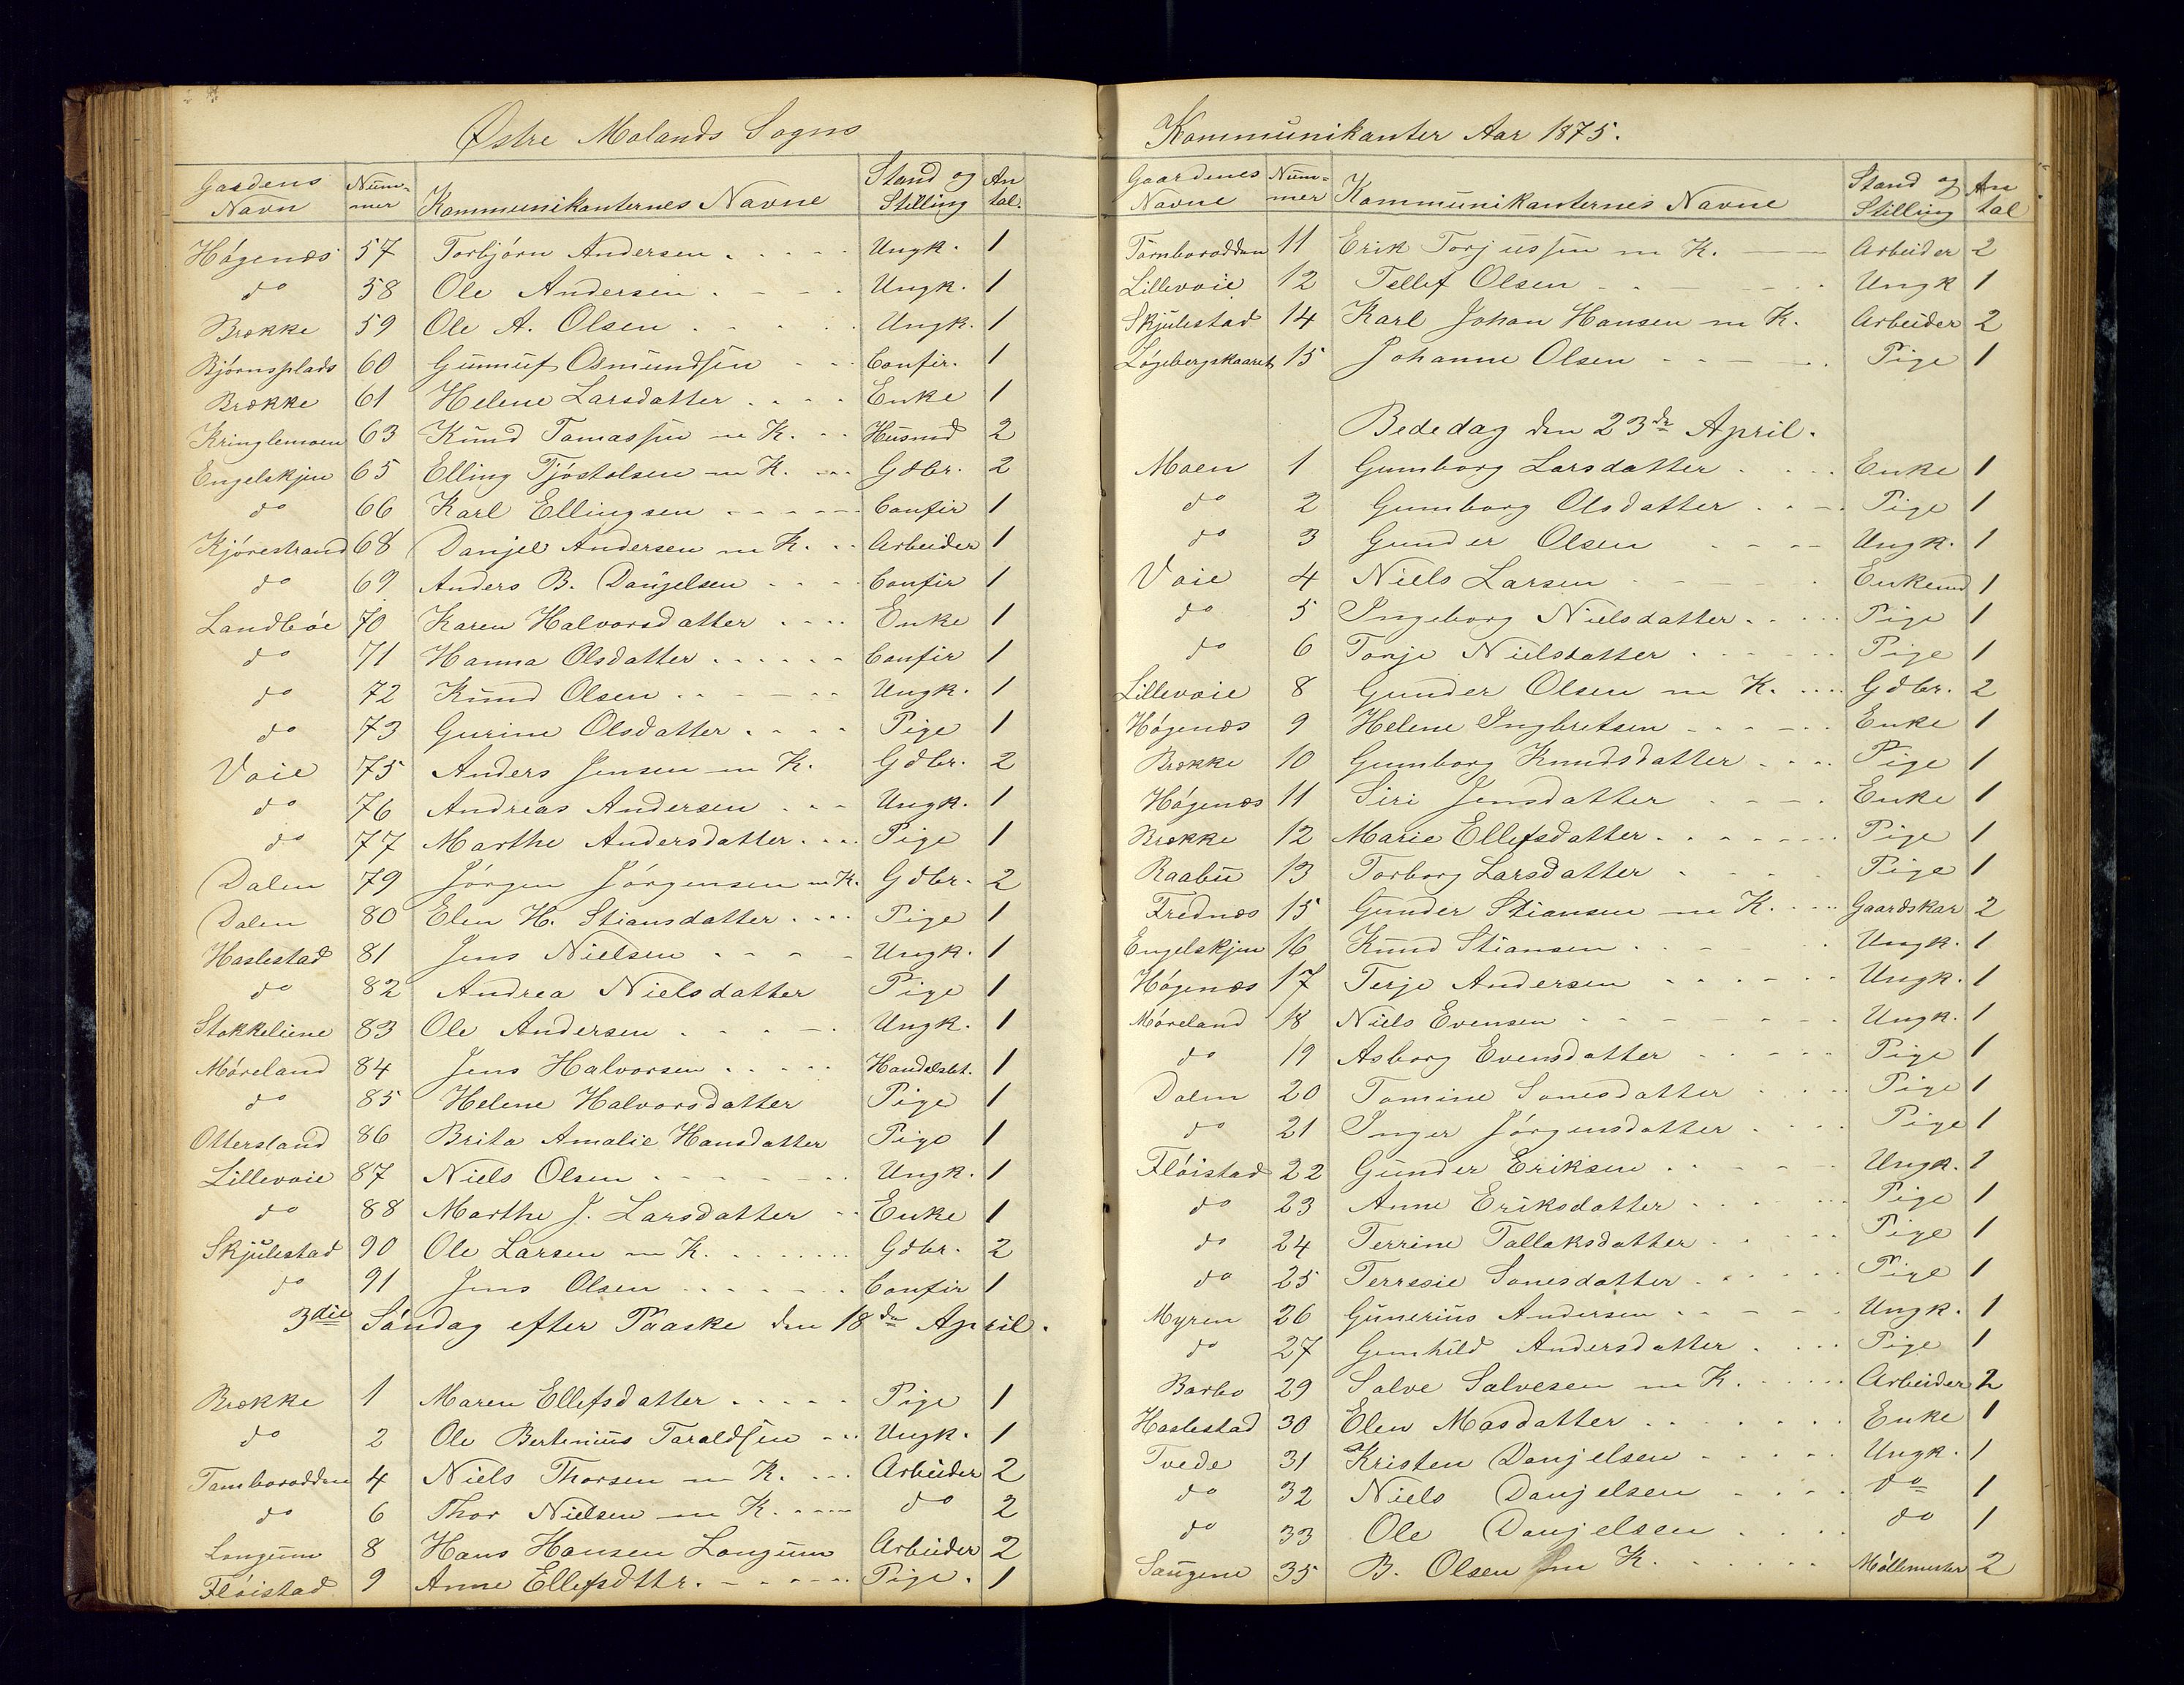 Østre Molands Sogns
Gaardens Navn | Num-mer | Kommunikanternes Navne | Stand og Stilling | An tal.
Høgenæs 57 Torbjørn Andersen Ungk. 1
do 58 Ole Andersen Ungk. 1
Brække 59 Ole A. Olsen Ungk. 1
Bjørnsplads 60 Gunnuf Osmundsen Confir. 1
Brække 61 Helene Larsdatter Enke 1
Kringlemoen 63 Knud Tomassen m K. Husmd 2
Engelskjen 65 Elling Tjøstolsen m K. Gdbr. 2
do 66 Karl Ellingsen Confir 1
Kjørestrand 68 Danjel Andersen m K. Arbeider 1
do 69 Anders B. Danjelsen Confir 1
Landbøe 70 Karen Halvorsdatter Enke 1
do 71 Hanna Olsdatter Confir 1
do 72 Knud Olsen Ungk. 1
do 73 Gurine Olsdatter Pige 1
Voie 75 Anders Jensen m K. Gdbr. 2
do 76 Andreas Andersen Ungk. 1
do 77 Marthe Andersdatter Pige 1
Dalen 79 Jørgen Jørgensen m K. Gdbr. 2
Dalen 80 Elen H. Stiansdatter Pige 1
Haslestad 81 Jens Nielsen Ungk. 1
do 82 Andrea Nielsdatter Pige 1
Stokkeliene 83 Ole Andersen Ungk. 1
Møreland 84 Jens Halvorsen Handelsbt. 1
do 85 Helene Halvorsdatter Pige 1
Ottersland 86 Brita Amalie Hansdatter Pige 1
Lillevoie 87 Niels Olsen Ungk. 1
do 88 Marthe J. Larsdatter Enke 1
Skjulestad 90 Ole Larsen m K. Gdbr. 2
do 91 Jens Olsen Confir 1
3die Søndag efter Paaske den 18de April.
Brække 1 Maren Ellefsdatter Pige 1
do 2 Ole Bertinius Taraldsen Ungk. 1
Tamborodden 4 Niels Thorsen m K. Arbeider 2
do 6 Thor Nielsen m K. do 2
Longum 8 Hans Hansen Longum Arbeider 2
Fløistad 9 Anne Ellefsdttr. Pige. 1
Kommunikanter Aar 1875.
Gaardenes Navne | Num-mer | Kommunikanternes Navne | Stand og Stilling | An tal
Tamborodden 11 Erik Torjussen m K. Arbeider 2
Lillevoie 12 Tellef Olsen Ungk 1
Skjulestad 14 Karl Johan Hansen m K. Arbeider 2
Løgebergskaaret 15 Johanne Olsen Pige 1
Bededag den 23de April.
Moen 1 Gumborg Larsdatter Enke 1
do 2 Gumborg Olsdatter Pige 1
do 3 Gunder Olsen Ungk. 1
Voie 4 Niels Larsen Enkemd 1
do 5 Ingeborg Nielsdatter Pige 1
do 6 Tonje Nielsdatter Pige 1
Lillevoie 8 Gunder Olsen m K. Gdbr. 2
Høgenæs 9 Helene Ingbretsen Enke 1
Brække 10 Gumborg Knudsdatter Pige 1
Høgenæs 11 Siri Jensdatter Enke 1
Brække 12 Marie Ellefsdatter Pige 1
Raabu 13 Torborg Larsdatter Pige 1
Frednæs 15 Gunder Stiansen m K. Gaardskar 2
Engelskjen 16 Knud Stiansen Ungk. 1
Høgenæs 17 Terje Andersen Ungk. 1
Møreland 18 Niels Evensen Ungk. 1
do 19 Asborg Evensdatter Pige 1
Dalen 20 Tomine Sonesdatter Pige 1
do 21 Inger Jørgensdatter Pige 1
Fløistad 22 Gunder Eriksen Ungk. 1
do 23 Anne Eriksdatter Pige 1
do 24 Terrine Tallaksdatter Pige 1
do 25 Terresie Sonesdatter Pige 1
Myren 26 Gunerius Andersen Ungk. 1
do 27 Gunhild Andersdatter Pige 1
Barbo 29 Salve Salvesen m K. Arbeider 2
Haslestad 30 Elen Masdatter Enke 1
Tvede 31 Kristen Danjelsen Ungk. 1
do 32 Niels Danjelsen do 1
do 33 Ole Danjelsen do 1
Saugene 35 B. Olsen m K. Møllemester 2